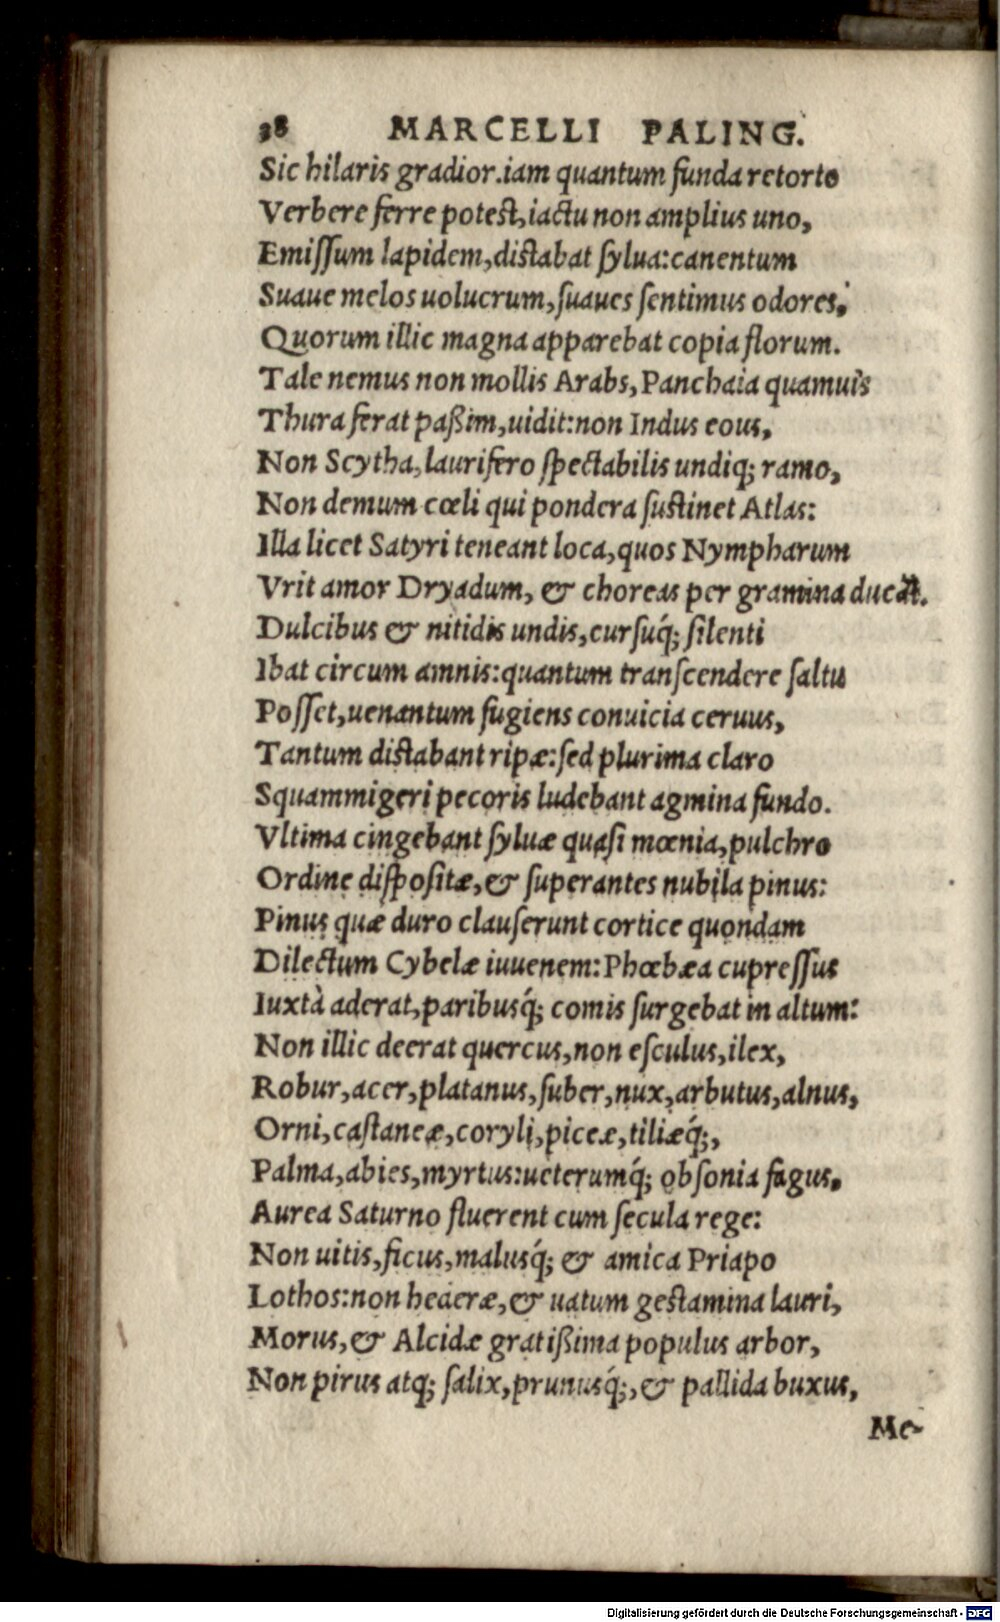 38 MARCELLI PALING.
Sic hilaris gradior.iam quantum funda retorto
Verbere ferre potest,iactu non amplius uno,
Emiſſum lapidem,distabat ſylua:canentum
Suaue melos uolucrum,ſuaues ſentimus odores,
Quorum illic magna apparebat copia florum.
Tale nemus non mollis Arabs,Panchaia quamuis
Thura ferat paßim,uidit:non Indus eous,
Non Scytha,laurifero ſpectabilis undiq; ramo,
Non demum cœli qui pondera ſustinet Atlas:
Illa licet Satyri teneant loca,quos Nympharum
Vrit amor Dryadum, & choreas per gramina ducāt.
Dulcibus & nitidis undis,curſuq́; ſilenti
Ibat circum amnis:quantum tranſcendere ſaltu
Poſſet,uenantum fugiens conuicia ceruus,
Tantum distabant ripæ:ſed plurima claro
Squammigeri pecoris ludebant agmina fundo.
Vltima cingebant ſyluæ quaſi mœnia,pulchro
Ordine diſpoſitæ,& ſuperantes nubila pinus:
Pinus quæ duro clauſerunt cortice quondam
Dilectum Cybelæ iuuenem:Phœbæa cupreſſus
Iuxtà aderat,paribusq́; comis ſurgebat in altum:
Non illic deerat quercus,non eſculus,ilex,
Robur,acer,platanus,ſuber,nux,arbutus,alnus,
Orni,caſtaneæ,coryli,piceæ,tiliæq́;,
Palma,abies,myrtus:ueterumq́; obſonia fagus,
Aurea Saturno fluerent cum ſecula rege:
Non uitis,ficus,malusq́; & amica Priapo
Lothos:non hederæ,& uatum gestamina lauri,
Morus,& Alcidæ gratißima populus arbor,
Non pirus atq; ſalix,prunusq́;,& pallida buxus,
Me-
Digitalisierung gefördert durch die Deutsche Forschungsgemeinschaft - DFG